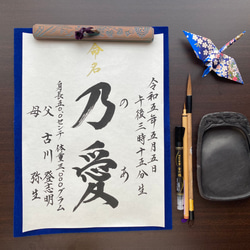 命名
令和五年五月五日
午後三時十五分 生
乃愛
のあ
身長五〇センチ 体重三、〇〇〇グラム
父 古川 登志明
母 弥生